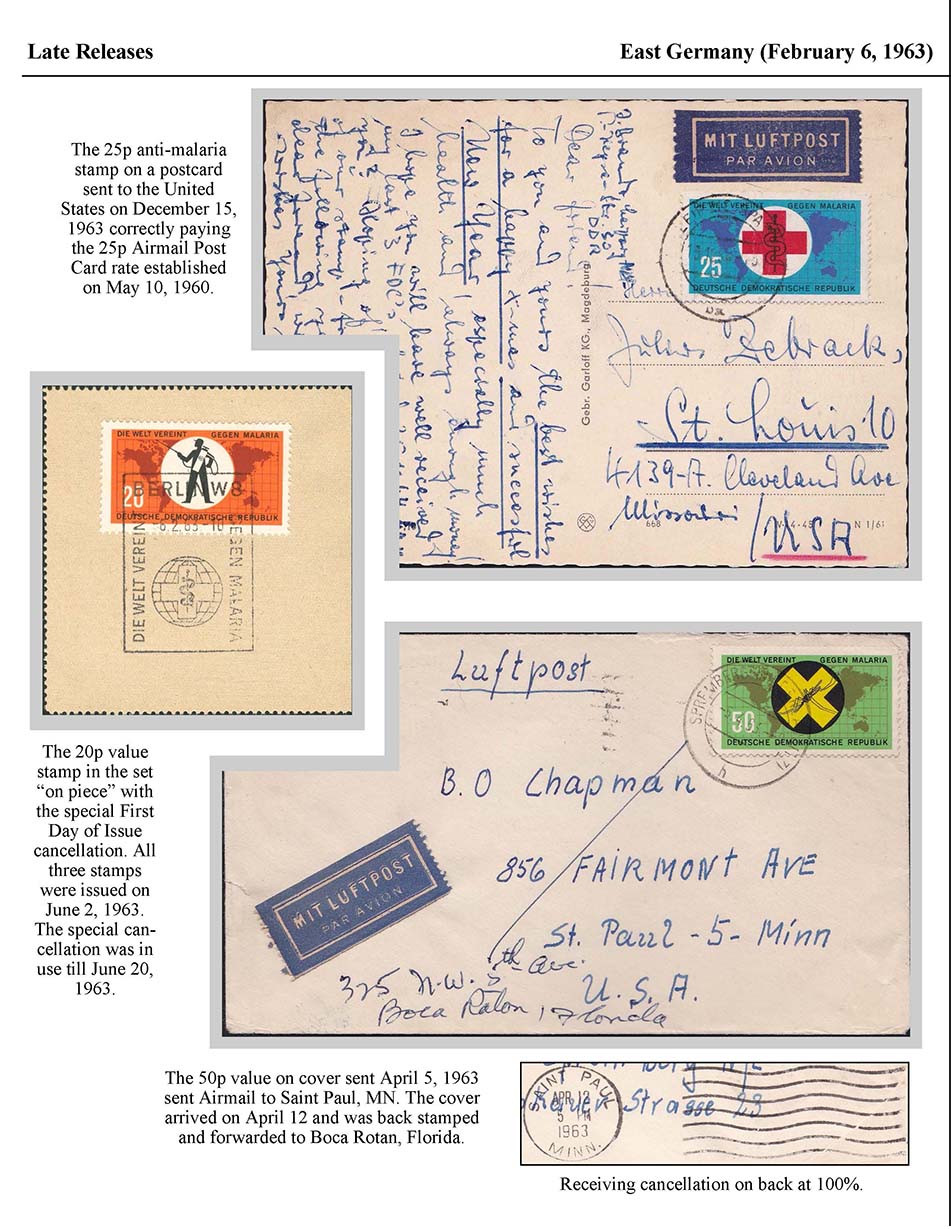 Late Releases
East Germany (February 6, 1963)
The 25p anti-malaria
stamp on a postcard
sent to the United
States on December 15,
1963 correctly paying
the 25p Airmail Post
Card rate established
on May 10, 1960.
MIT LUFTPOST
PAR AVION
DIE WELT VEREINT GEGEN MALARIA
25
DEUTSCHE DEMOKRATISCHE REPUBLIK
DDR
Dear friend!
To you and yours the best wishes
for a happy x-mas and succesful
New Year! especially much
health and always enough money.
I hope you will have well received
my last 3 FDC's
Gebr. Garloff KG., Magdeburg
Herrn
Julius Zebrack,
St. Louis 10
4139-A. Cleveland Ave
Missouri
USA
668
N 1/61
DIE WELT VEREINT GEGEN MALARIA
20
DEUTSCHE DEMOKRATISCHE REPUBLIK
BERLIN W8
6.2.63-10
DIE WELT VEREINT
GEGEN MALARIA
The 20p value
stamp in the set
“on piece” with
the special First
Day of Issue
cancellation. All
three stamps
were issued on
June 2, 1963.
The special can-
cellation was in
use till June 20,
1963.
Luftpost
DIE WELT VEREINT GEGEN MALARIA
50
DEUTSCHE DEMOKRATISCHE REPUBLIK
B.O Chapman
856 FAIRMONT AVE
St. Paul - 5 - Minn
U. S. A.
MIT LUFTPOST
PAR AVION
325 N.W. 5th Ave.
Boca Raton, Florida
The 50p value on cover sent April 5, 1963
sent Airmail to Saint Paul, MN. The cover
arrived on April 12 and was back stamped
and forwarded to Boca Rotan, Florida.
SAINT PAUL
APR 12
5 PM
1963
MINN.
Strasse 23
Receiving cancellation on back at 100%.